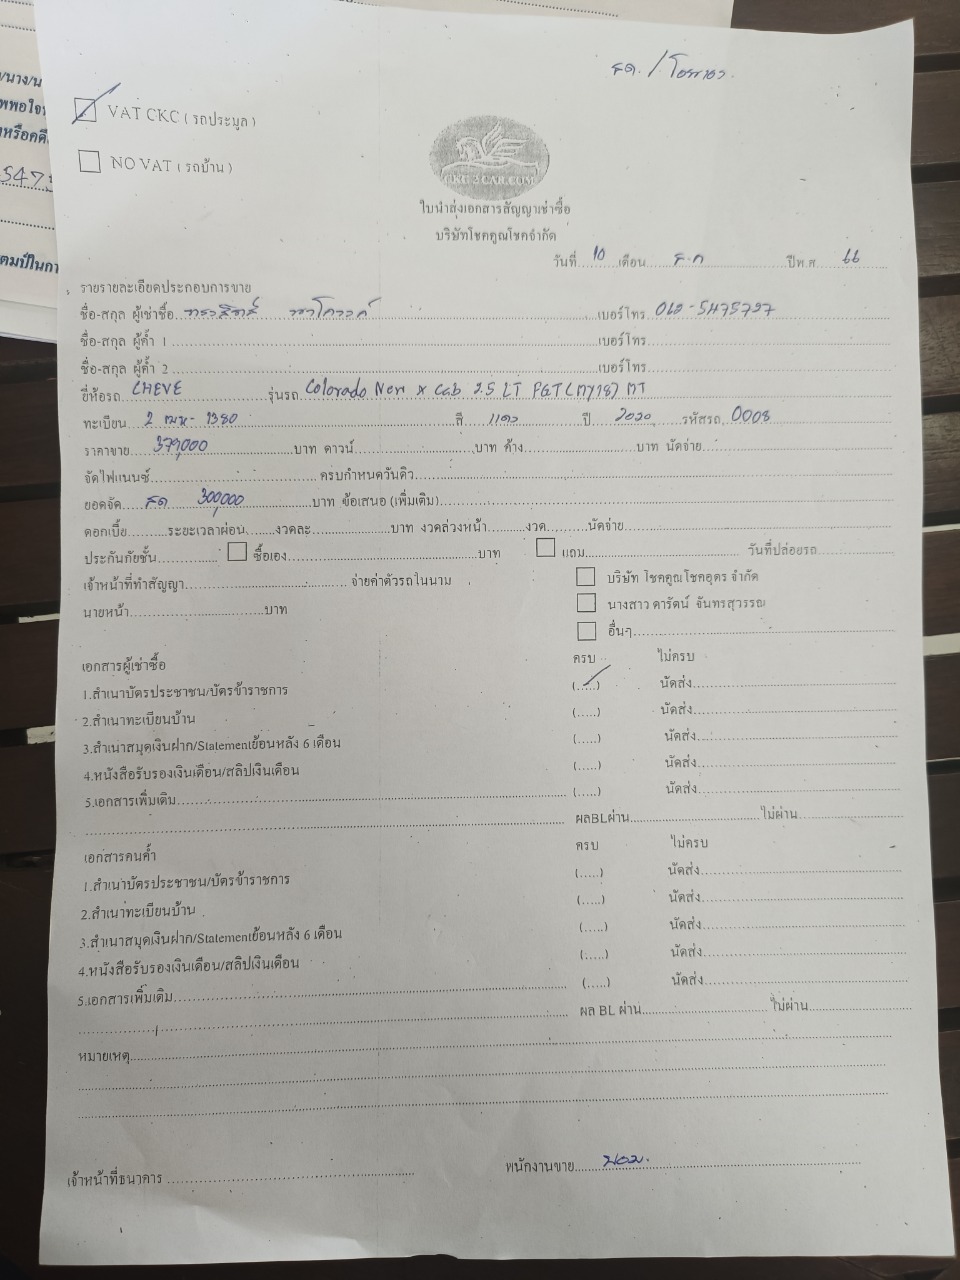 สด. / โอนลอย
VAT CKC ( รถประมูล )
NO VAT ( รถบ้าน )
CKC 2 CAR.COM
ใบนำส่งเอกสารสัญญาเช่าซื้อ
บริษัทโชคคูณโชคจำกัด
วันที่ 10 เดือน ส.ค ปีพ.ศ 66
รายรายละเอียดประกอบการขาย
ชื่อ-สกุล ผู้เช่าซื้อ เบอร์โทร
ชื่อ-สกุล ผู้ค้ำ 1 เบอร์โทร
ชื่อ-สกุล ผู้ค้ำ 2 เบอร์โทร
ยี่ห้อรถ CHEVE รุ่นรถ Colorado New X Cab 2.5 LT FGT (MY18) MT
ทะเบียน 2 ฒห- 1380 สี แดง ปี 2020 รหัสรถ 0008
ราคาขาย 379,000 บาท ดาวน์ บาท ค้าง บาท นัดจ่าย
จัดไฟแนนซ์ ครบกำหนดวันคิว
ยอดจัด สด 300,000 บาท ข้อเสนอ (เพิ่มเติม)
ดอกเบี้ย ระยะเวลาผ่อน งวดละ บาท งวดล่วงหน้า งวด นัดจ่าย
ประกันภัยชั้น ซื้อเอง บาท แถม วันที่ปล่อยรถ
เจ้าหน้าที่ทำสัญญา จ่ายค่าตัวรถในนาม บริษัท โชคคูณโชคอุดร จำกัด
นายหน้า บาท นางสาว ดารัตน์ จันทรสุวรรณ
อื่นๆ
เอกสารผู้เช่าซื้อ ครบ ไม่ครบ
1.สำเนาบัตรประชาชน/บัตรข้าราชการ (.....) นัดส่ง
2.สำเนาทะเบียนบ้าน (.....) นัดส่ง
3.สำเนาสมุดเงินฝาก/Statementย้อนหลัง 6 เดือน (.....) นัดส่ง
4.หนังสือรับรองเงินเดือน/สลิปเงินเดือน (.....) นัดส่ง
5.เอกสารเพิ่มเติม (.....) นัดส่ง
ผลBLผ่าน ไม่ผ่าน
เอกสารคนค้ำ ครบ ไม่ครบ
1.สำเนาบัตรประชาชน/บัตรข้าราชการ (.....) นัดส่ง
2.สำเนาทะเบียนบ้าน (.....) นัดส่ง
3.สำเนาสมุดเงินฝาก/Statementย้อนหลัง 6 เดือน (.....) นัดส่ง
4.หนังสือรับรองเงินเดือน/สลิปเงินเดือน (.....) นัดส่ง
5.เอกสารเพิ่มเติม (.....) นัดส่ง
ผล BL ผ่าน ไม่ผ่าน
หมายเหตุ
เจ้าหน้าที่ธนาคาร พนักงานขาย